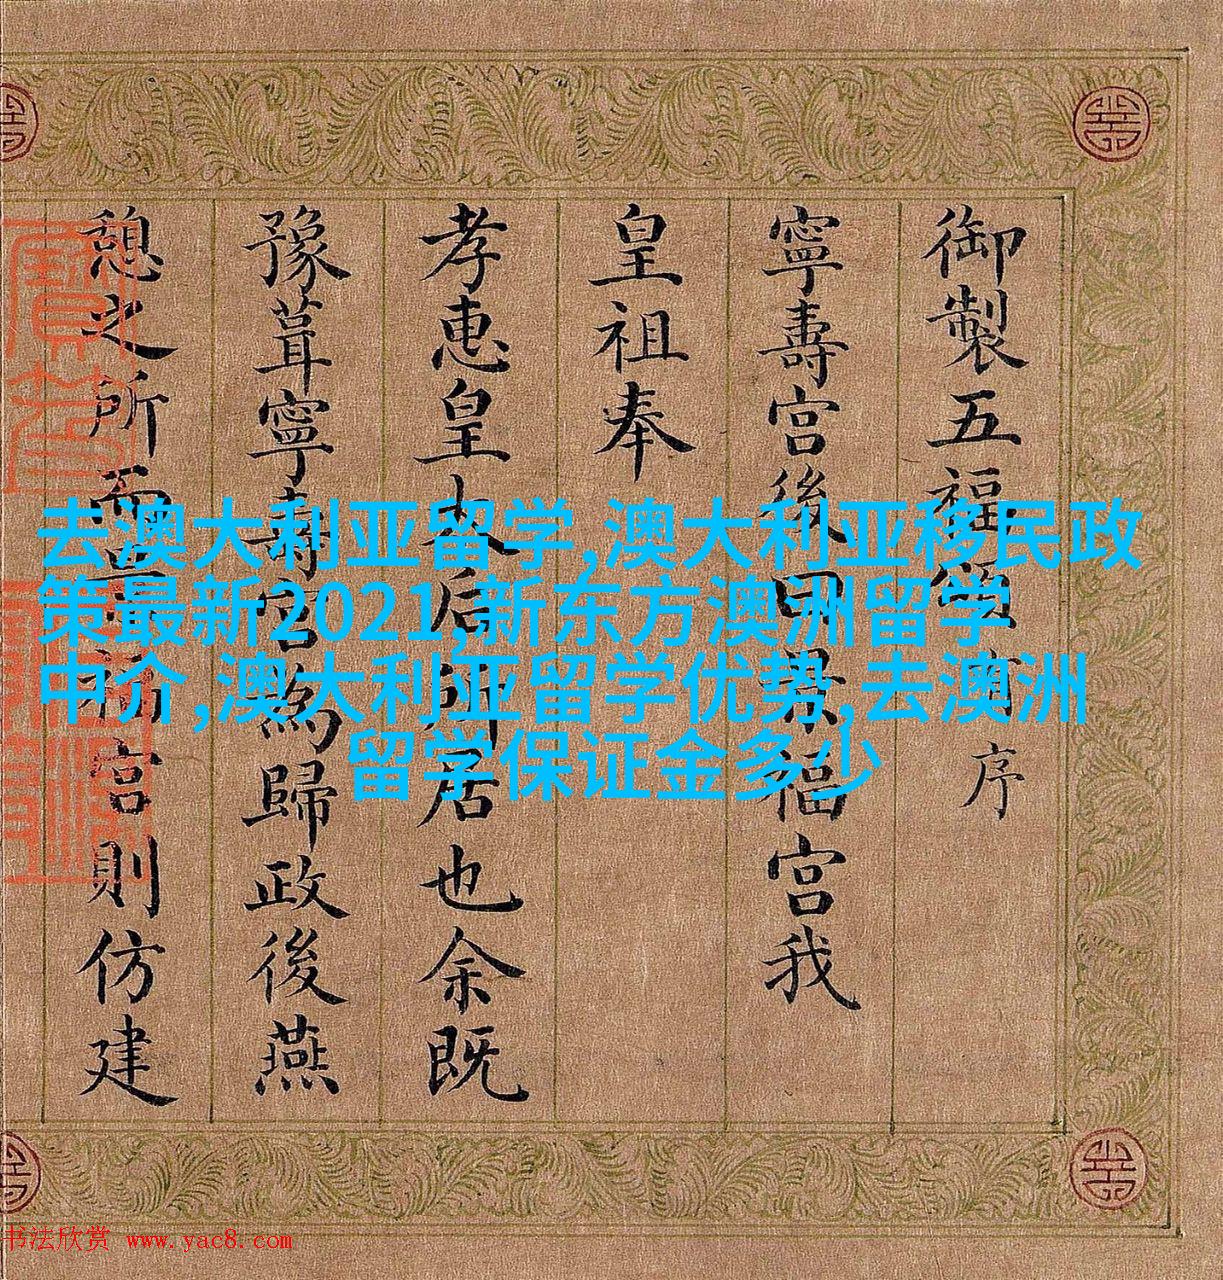 御製五福有序
寧壽宮後曰景福宮我
皇祖奉
孝惠皇太后所居也余既
豫葺寧壽宮為歸政後燕
憩之所而景福宮則仿建
去澳大利亚留学,澳大利亚移民政
策最新2021,新东方澳洲留学
中介,澳大利亚留学优势,去澳洲
留学保证金多少
书法欣赏 www.yac8.com